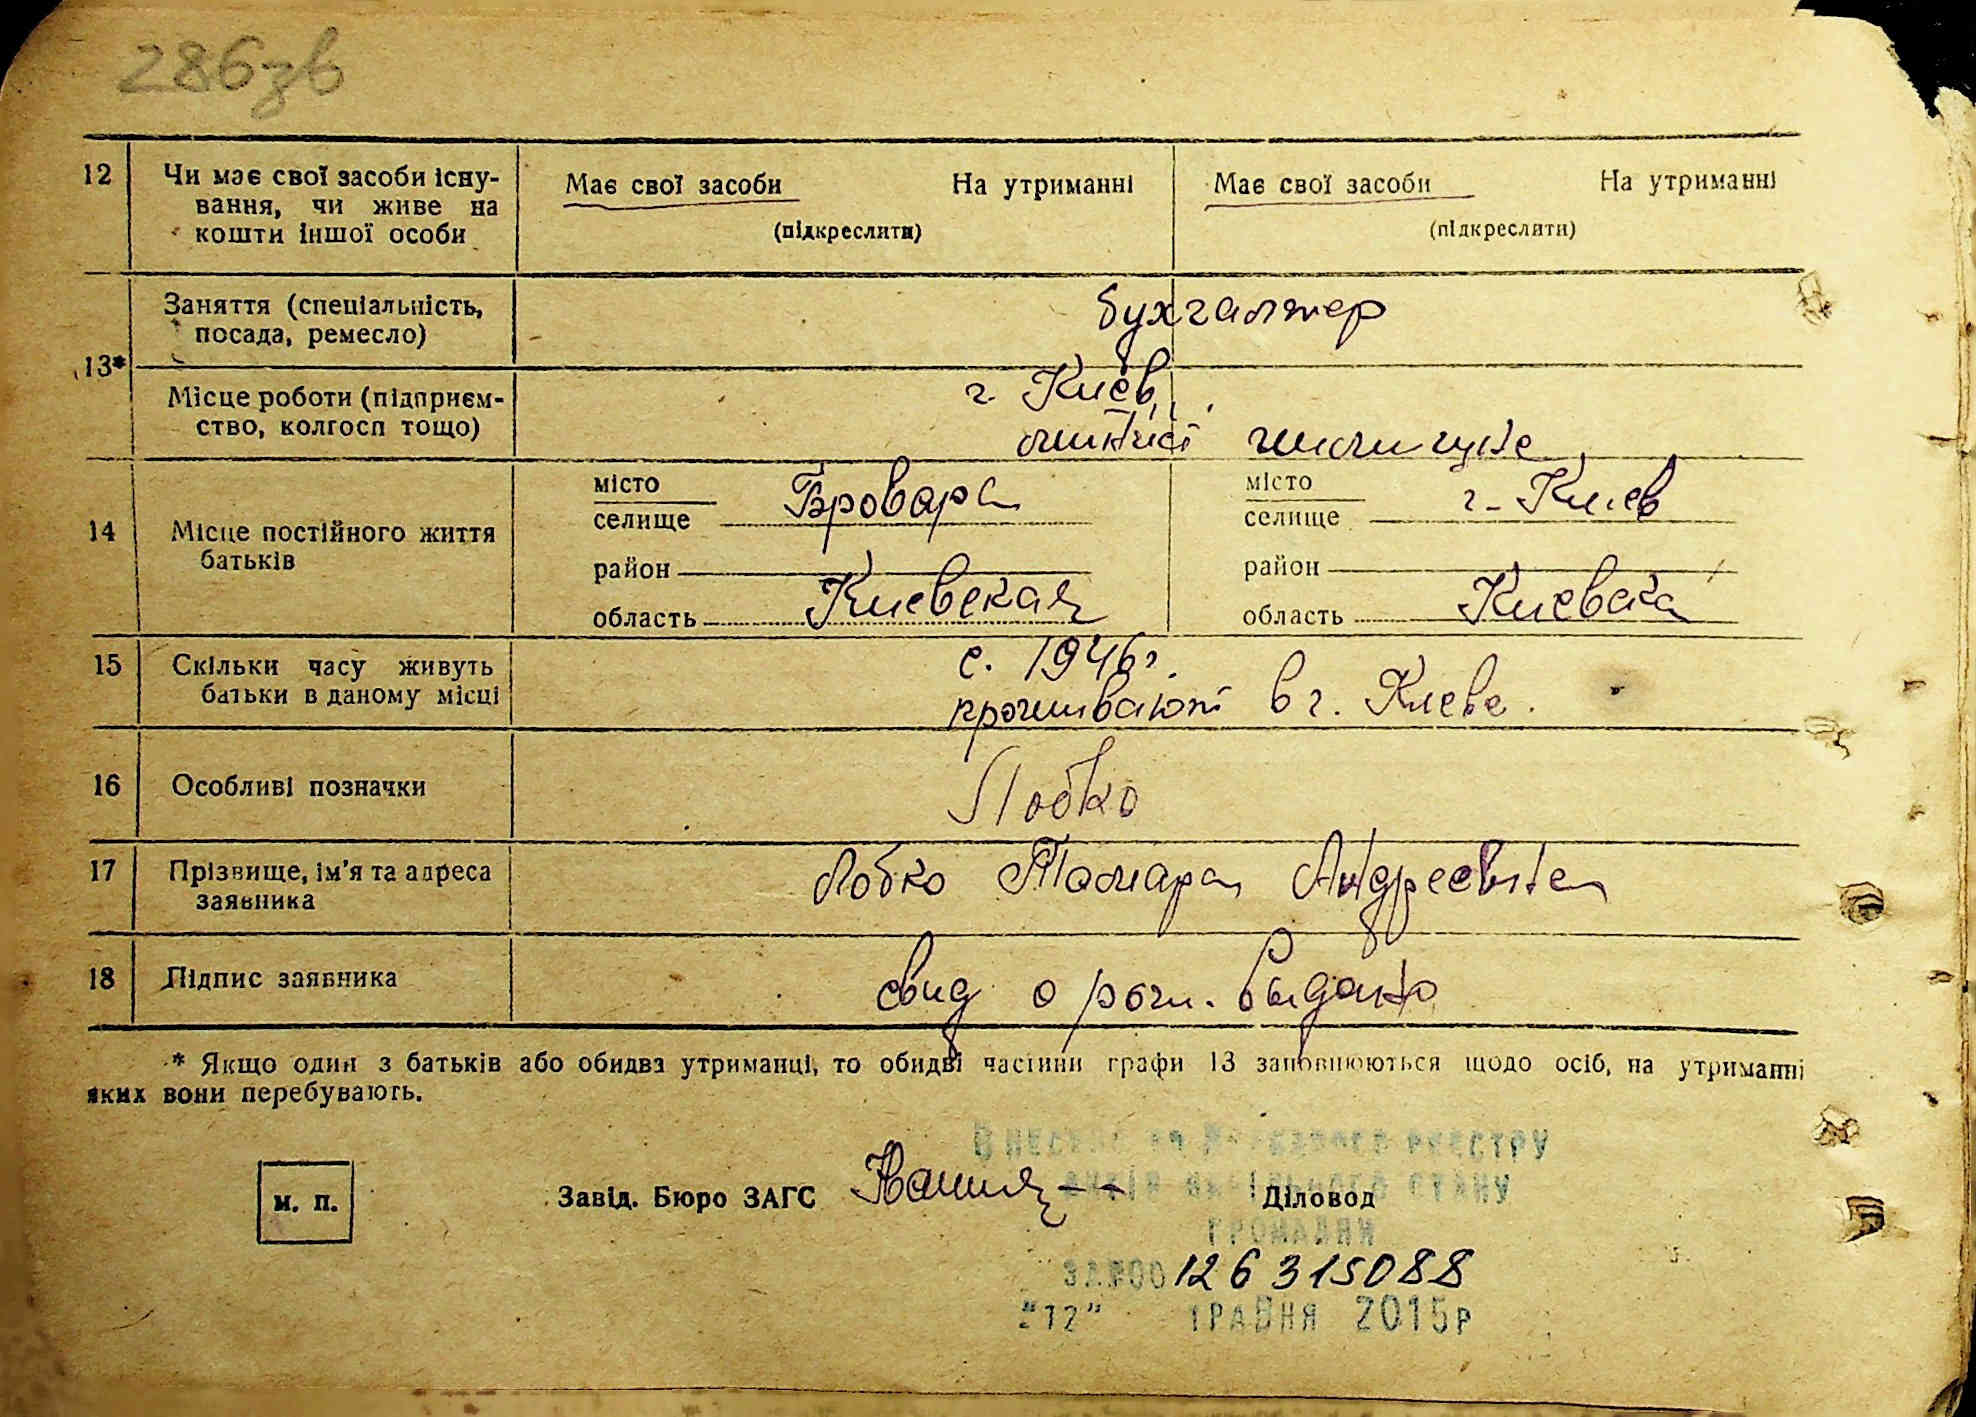 286зв
12 Чи має свої засоби існу-
вання, чи живе на
кошти іншої особи
Має свої засоби На утриманні
(підкреслити)
Має свої засоби На утриманні
(підкреслити)
13*
Заняття (спеціальність,
посада, ремесло)
бухгалтер
Місце роботи (підприєм-
ство, колгосп тощо)
г. Киев
14 Місце постійного життя
батьків
місто
селище
Бровары
район
область Киевская
місто
селище
г. Киев
район
область Киевска
15 Скільки часу живуть
батьки в даному місці
с. 1946г.
проживают в г. Киеве.
16 Особливі позначки
Лобко
17 Прізвище, ім'я та адреса
заявника
Лобко Тамара Андреевна
18 Підпис заявника
свид о рож. выдано
* Якщо один з батьків або обидва утриманці, то обидві частини графи 13 заповнюються щодо осіб, на утриманні
яких вони перебувають.
м. п.
Завід. Бюро ЗАГС
Діловод
Внесено до Державного реєстру
актів цивільного стану
громадян
за №00126315088
"12" травня 2015р